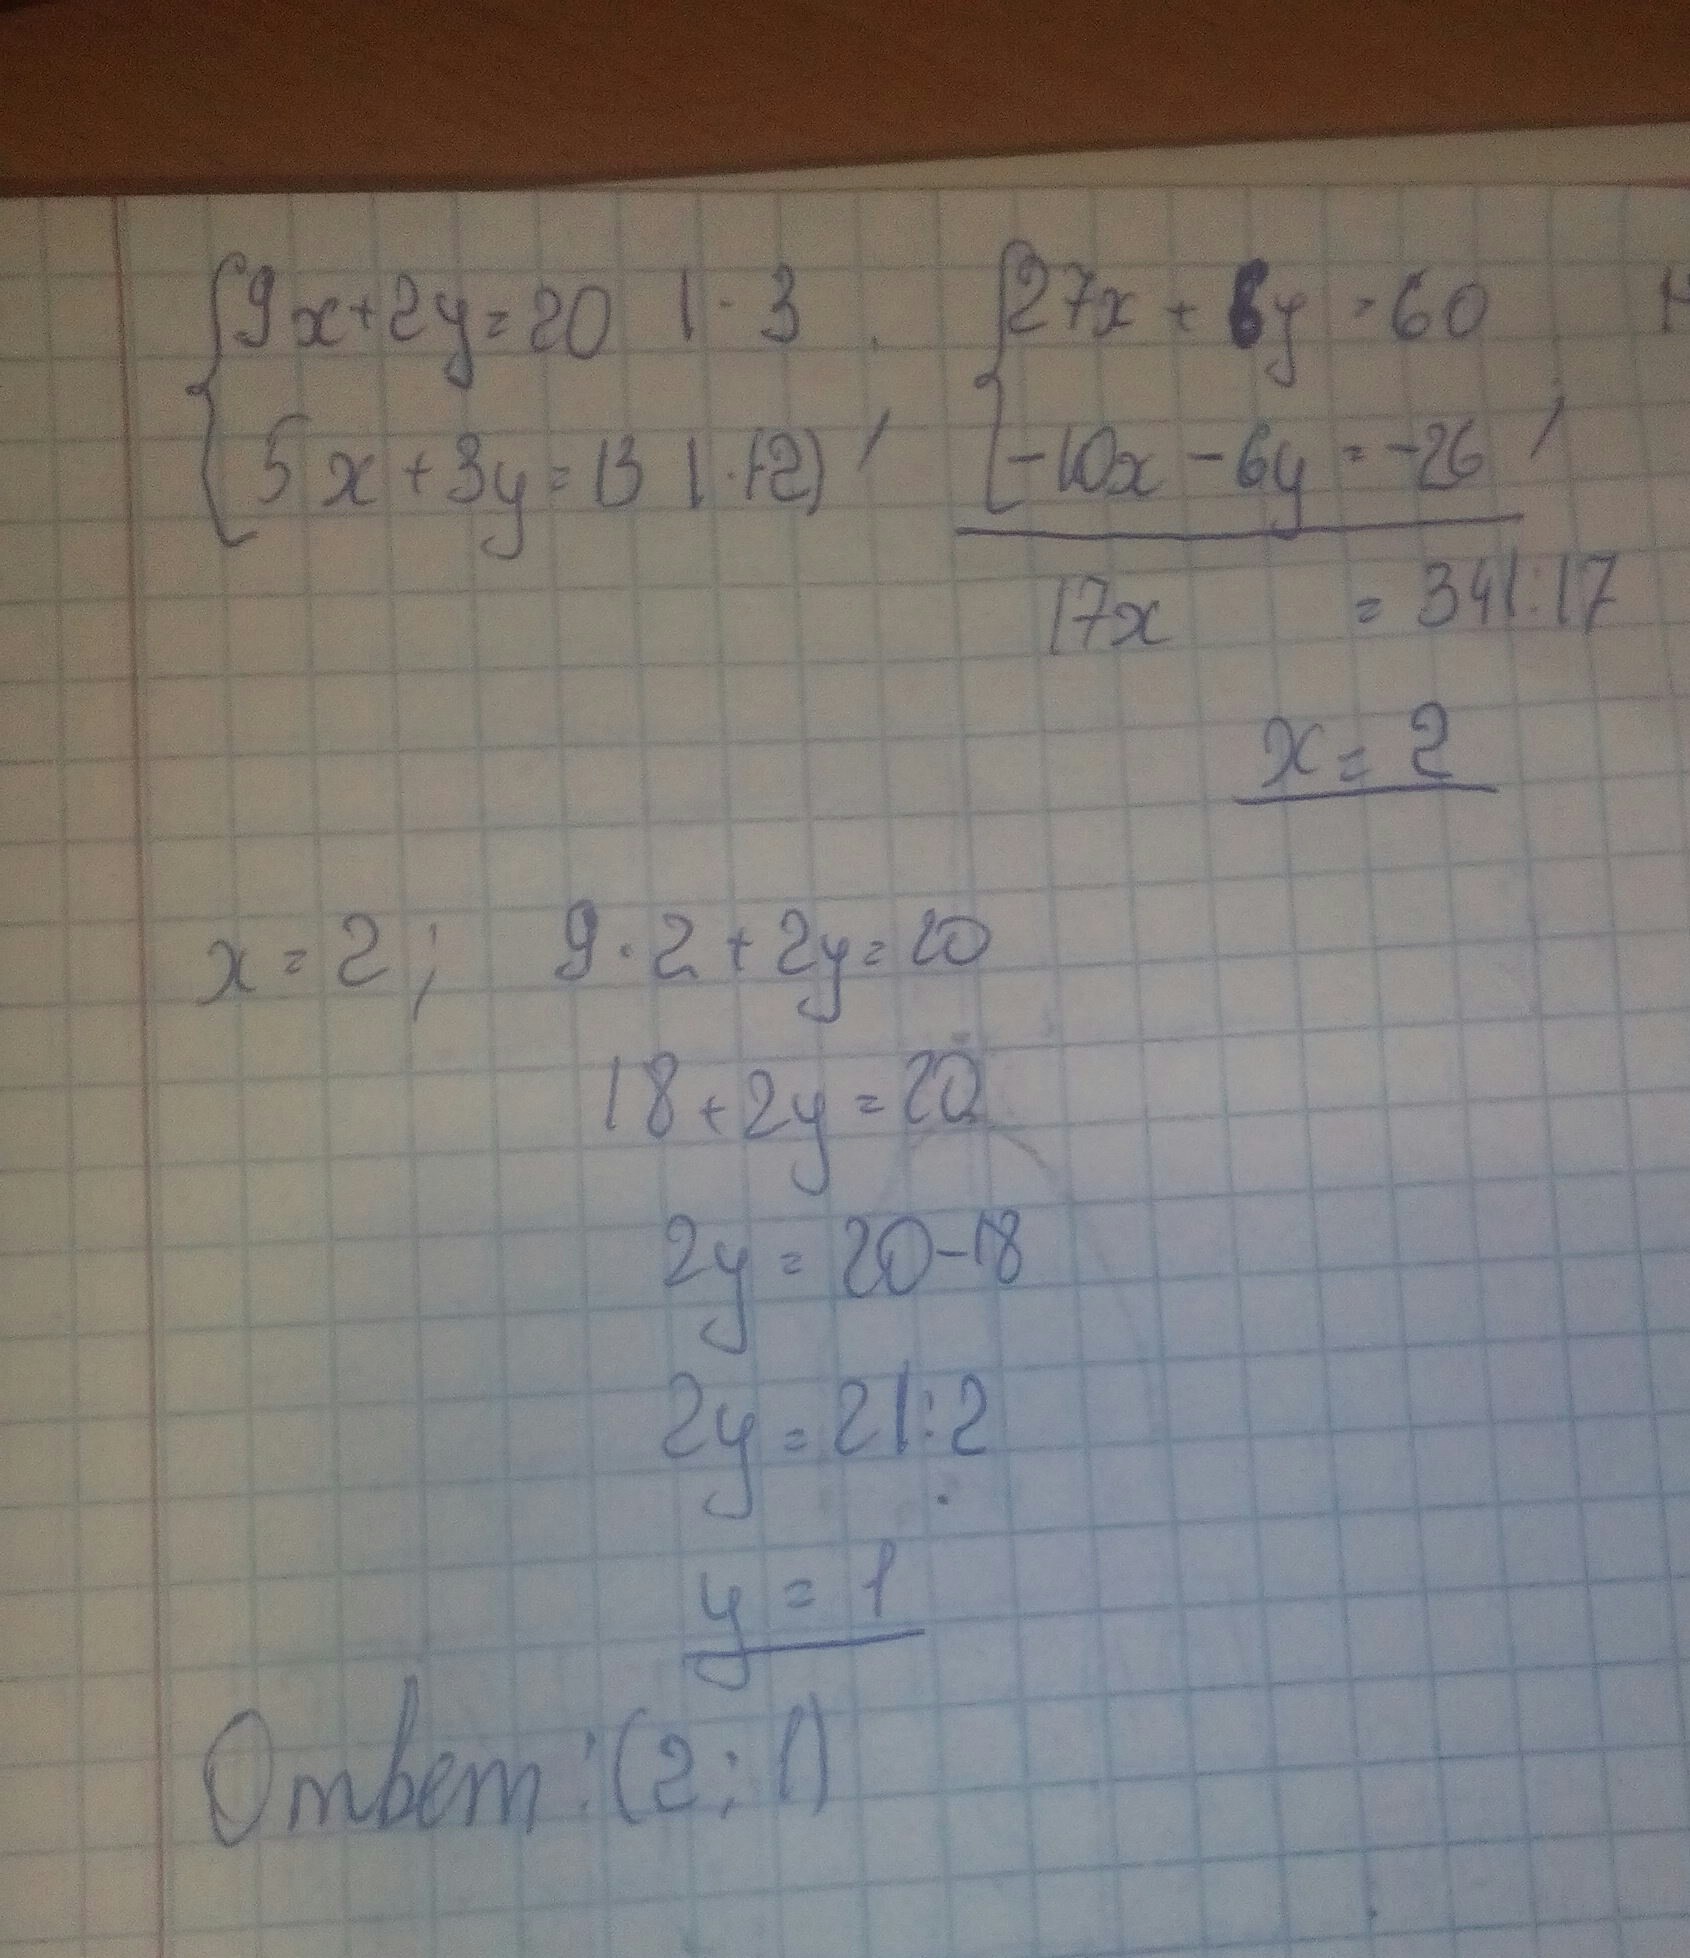 {9x+2y=20 |·3 {27x+6y=60
{5x+3y=13 |·(-2), {-10x-6y=-26,
17x = 34|:17
x=2
x=2; 9·2+2y=20
18+2y=20
2y=20-18
2y=2|:2
y=1
Ответ:(2;1)